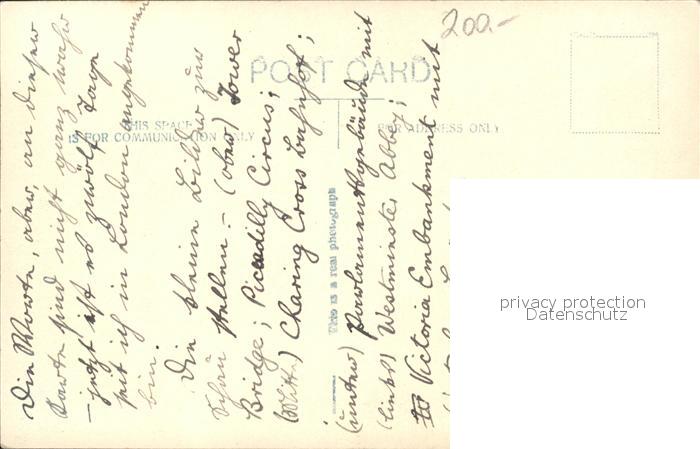 200.-
POST CARD
THIS SPACE
IS FOR COMMUNICATION ONLY
FOR ADDRESS ONLY
This is a real photograph
Die Worte, aber, an dieser
Karte sind nicht ganz wahr
– jetzt ist es zwölf Tage
seit ich in London angekommen
bin.
Die kleine Bilder zur
Schau stellen: – (oben) Tower
Bridge; Piccadilly Circus;
(Mitte) Charing Cross Bahnhof;
(unten) Parlamentsgebäude mit
(links) Westminster Abbey;
Victoria Embankment mit
privacy protection
Datenschutz